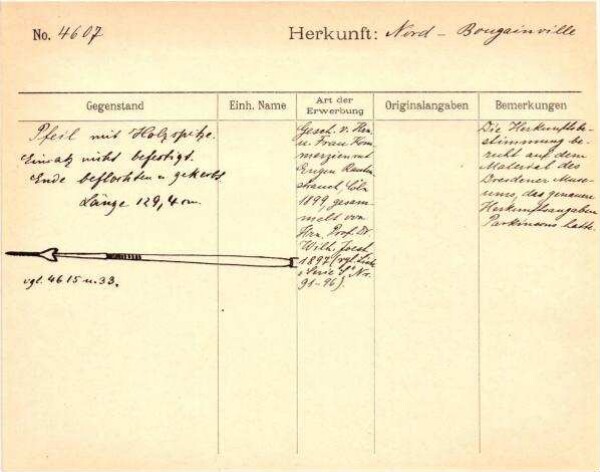 No. 4607
Herkunft: Nord - Bougainville
Gegenstand
Einh. Name
Art der
Erwerbung
Originalangaben
Bemerkungen
Pfeil mit Holzspitze.
Einsatz nicht befestigt.
Ende beflochten u. gekerbt
Länge 129,4 cm.
vgl. 4615 u. 33.
Gesch. v. Hrn.
u. Frau Kom
merzienrat
Eugen Rauten
strauch, Cöln
1899, gesam
melt von
Hrn. Prof. Dr.
Wilh. Joest
1897 (vgl. Liste
"Serie S" Nr.
91-96).
Die Herkunftsbe-
stimmung be-
ruht auf dem
Material des
Dresdener Muse-
ums, das genauere
Herkunftsangaben
Parkinsons hatte.